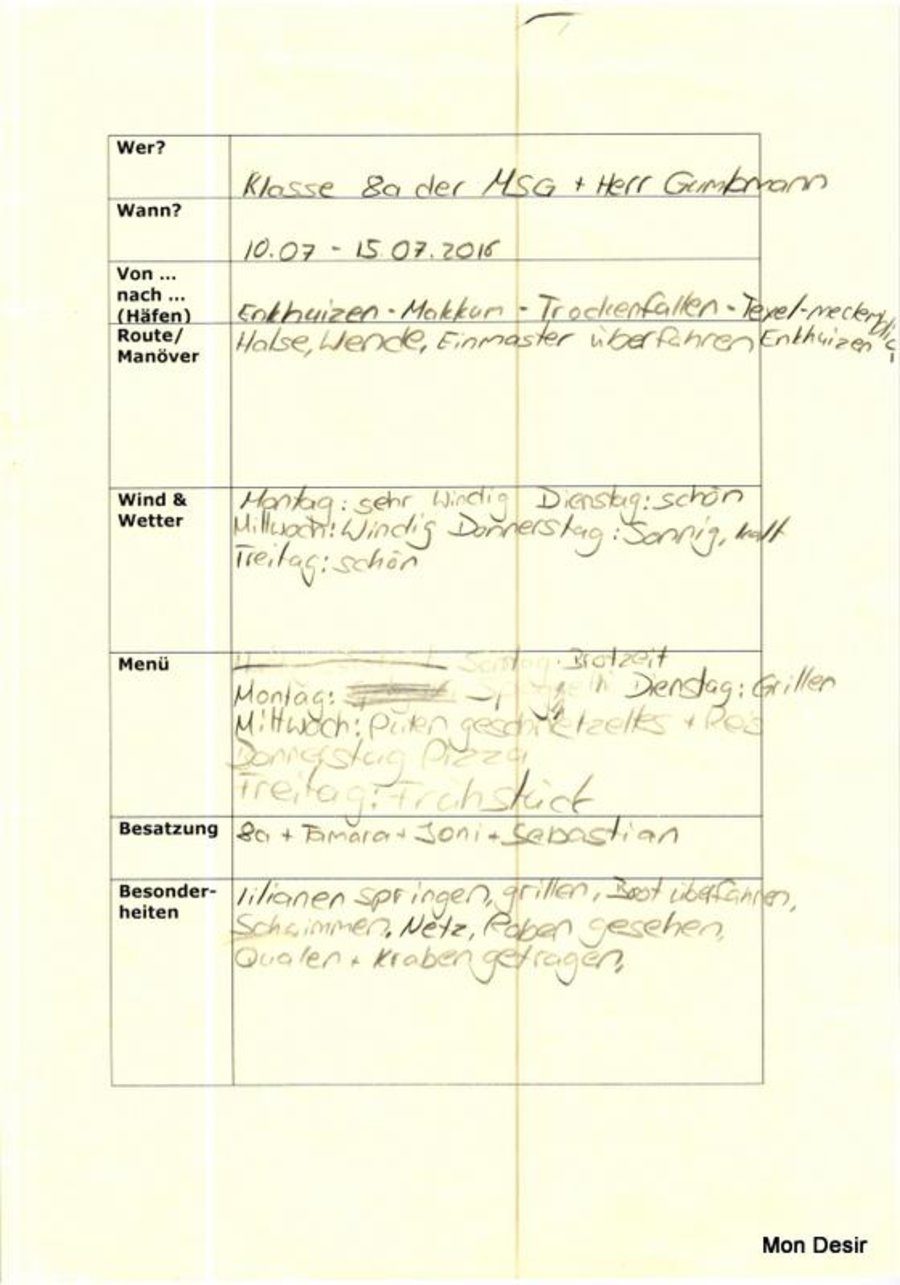 Wer?
Klasse 8a der MSG + Herr Gumbmann
Wann?
10.07 - 15.07.2016
Von ...
nach ...
(Häfen)
Enkhuizen - Makkum - Trockenfallen - Texel-
Enkhuizen
Route/
Manöver
Halse, Wende, Einmaster überfahren
Wind &
Wetter
Montag: sehr Windig Dienstag: schön
Mittwoch: Windig Donnerstag: Sonnig, kalt
Freitag: schön
Menü
Sontag: Brotzeit
Montag: Dienstag: Grillen
Mittwoch: Puten geschnetzeltes + Reis
Donnerstag Pizza
Freitag: Frühstück
Besatzung
8a + Tamara + Joni + Sebastian
Besonder-
heiten
lilianen springen, grillen, Boot überfahren,
Schwimmen, Netz, Roben gesehen,
Qualen + Kraben getragen,
Mon Desir